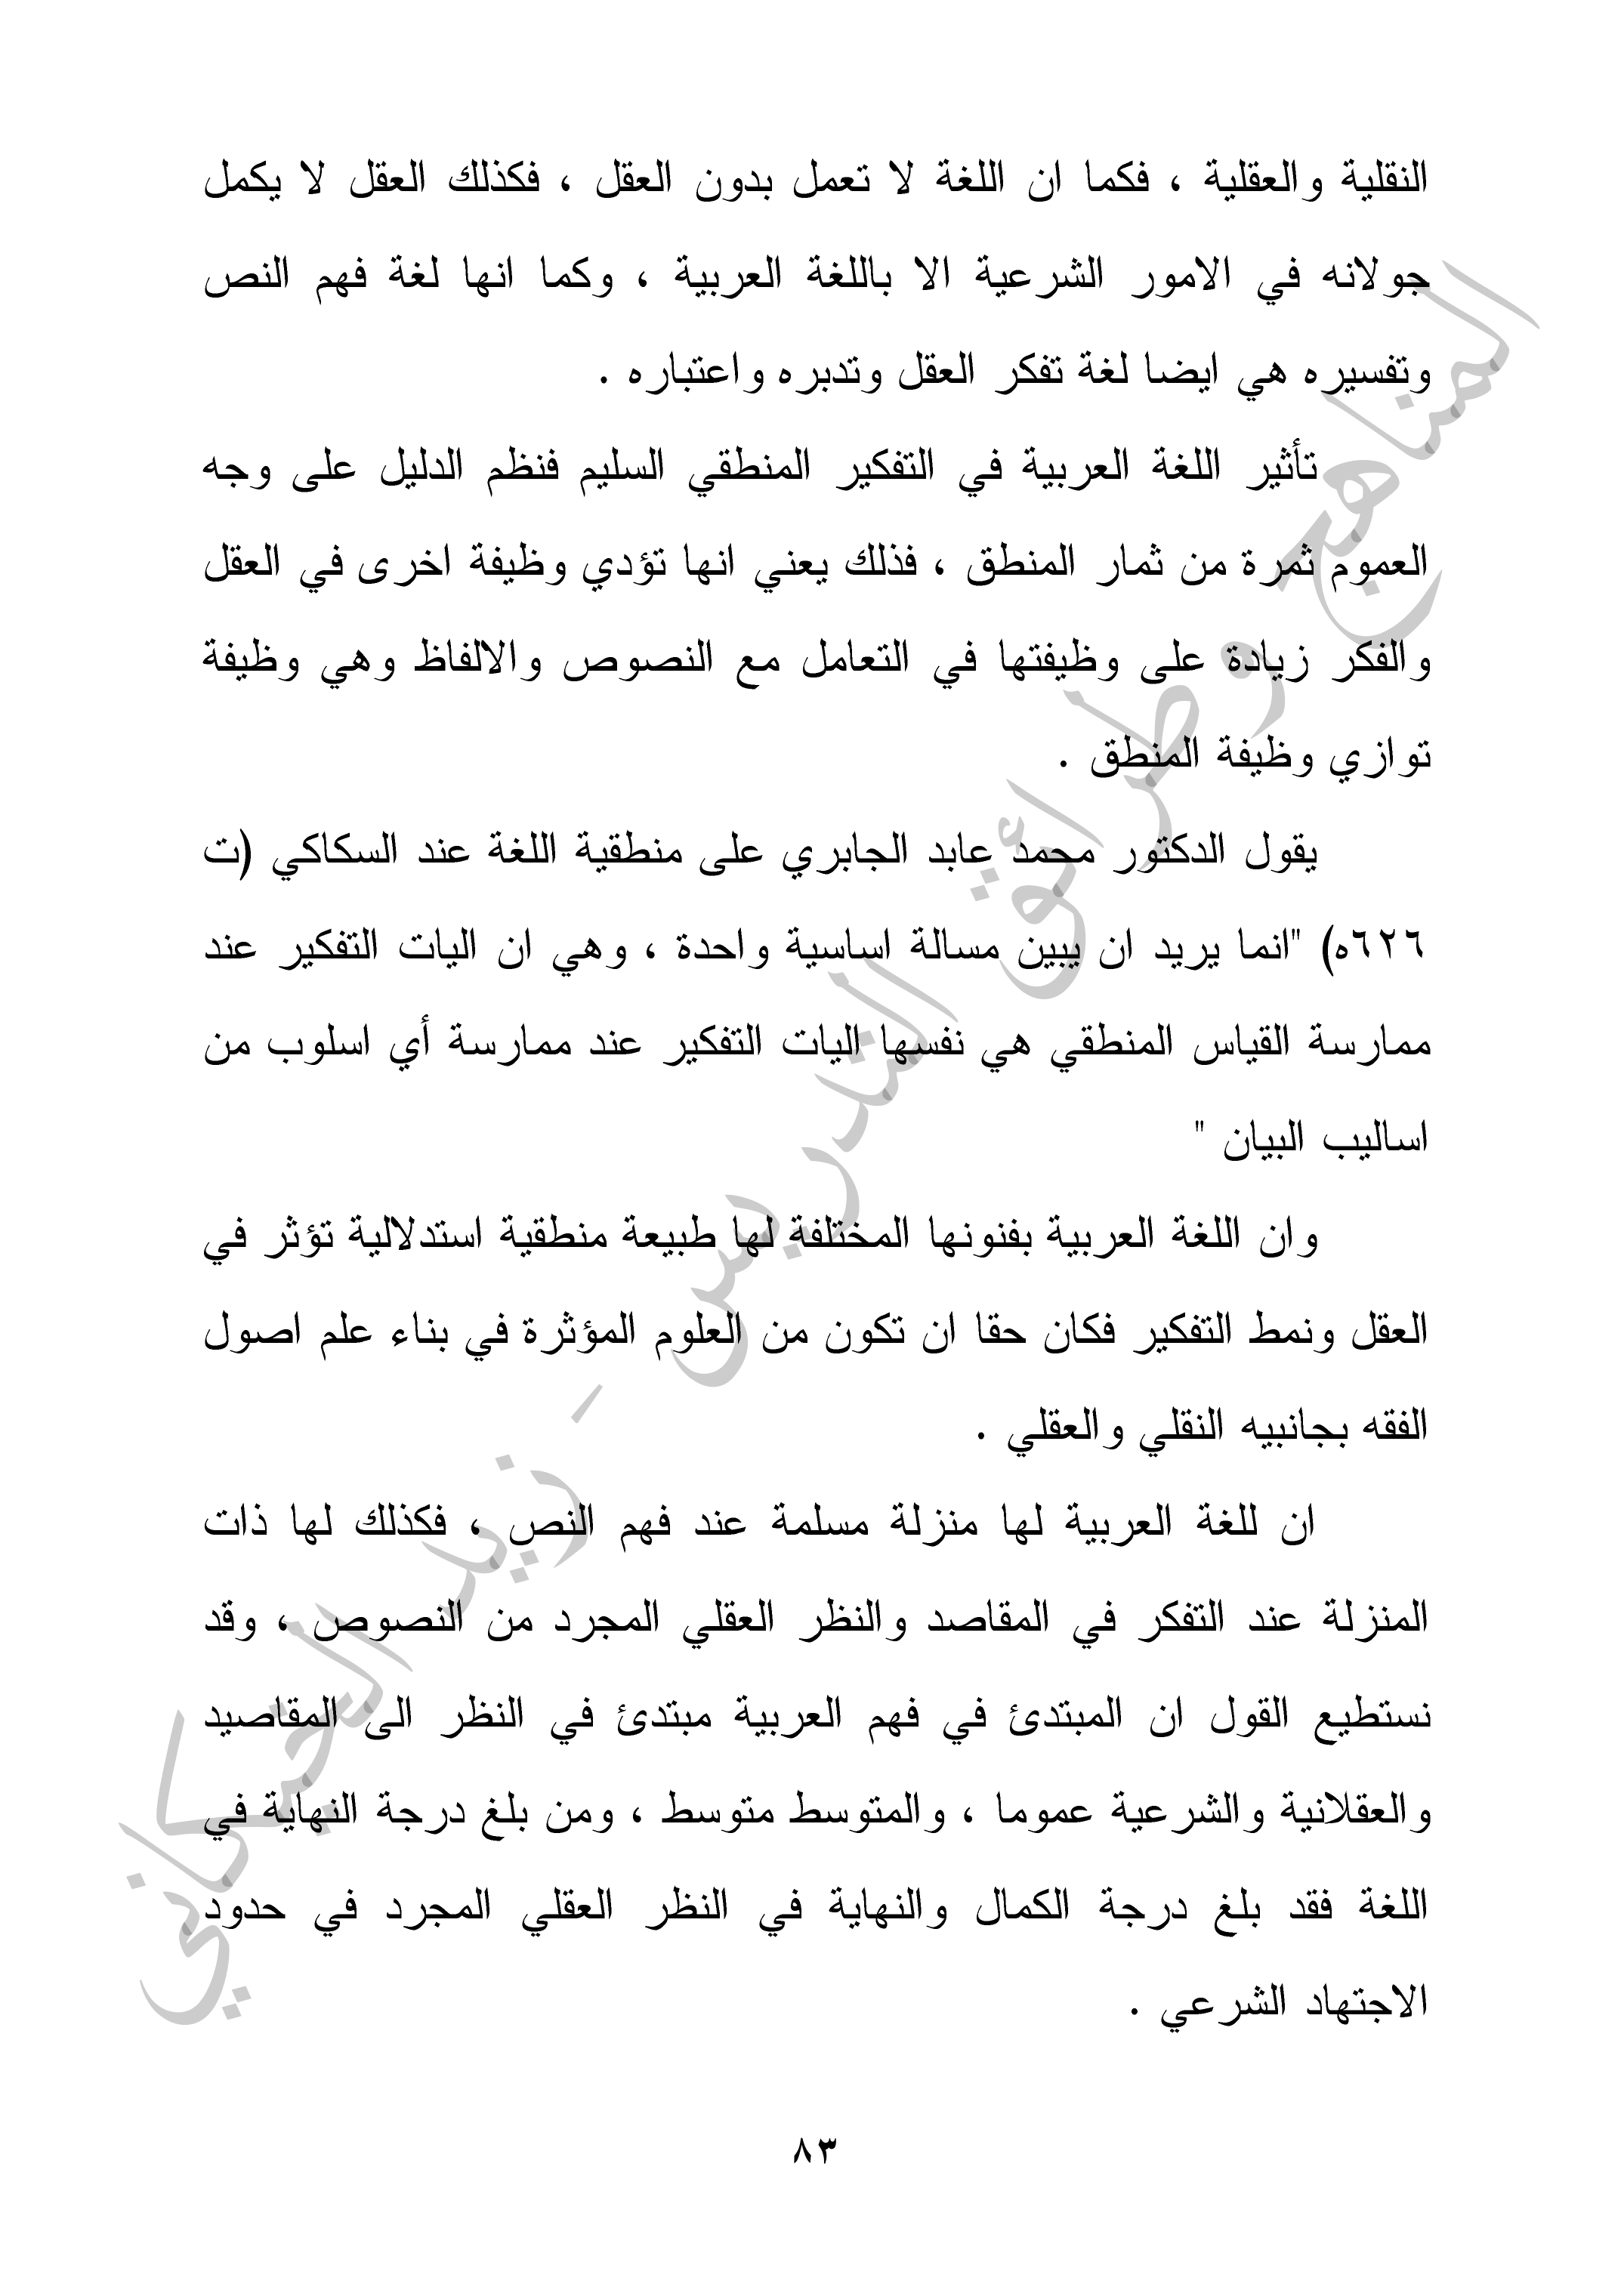 النقلية والعقلية ، فكما ان اللغة لا تعمل بدون العقل ، فكذلك العقل لا يكمل
جولانه في الامور الشرعية الا باللغة العربية ، وكما انها لغة فهم النص
وتفسيره هي ايضا لغة تفكر العقل وتدبره واعتباره .
تأثير اللغة العربية في التفكير المنطقي السليم فنظم الدليل على وجه
العموم ثمرة من ثمار المنطق ، فذلك يعني انها تؤدي وظيفة اخرى في العقل
والفكر زيادة على وظيفتها في التعامل مع النصوص والالفاظ وهي وظيفة
توازي وظيفة المنطق .
يقول الدكتور محمد عابد الجابري على منطقية اللغة عند السكاكي (ت
٦٢٦ه) "انما يريد ان يبين مسالة اساسية واحدة ، وهي ان اليات التفكير عند
ممارسة القياس المنطقي هي نفسها اليات التفكير عند ممارسة أي اسلوب من
اساليب البيان "
وان اللغة العربية بفنونها المختلفة لها طبيعة منطقية استدلالية تؤثر في
العقل ونمط التفكير فكان حقا ان تكون من العلوم المؤثرة في بناء علم اصول
الفقه بجانبيه النقلي والعقلي .
ان للغة العربية لها منزلة مسلمة عند فهم النص ، فكذلك لها ذات
المنزلة عند التفكر في المقاصد والنظر العقلي المجرد من النصوص ، وقد
نستطيع القول ان المبتدئ في فهم العربية مبتدئ في النظر الى المقاصيد
والعقلانية والشرعية عموما ، والمتوسط متوسط ، ومن بلغ درجة النهاية في
اللغة فقد بلغ درجة الكمال والنهاية في النظر العقلي المجرد في حدود
الاجتهاد الشرعي .
٨٣
المناهج وطرائق التدريس - زيد الخيكاني